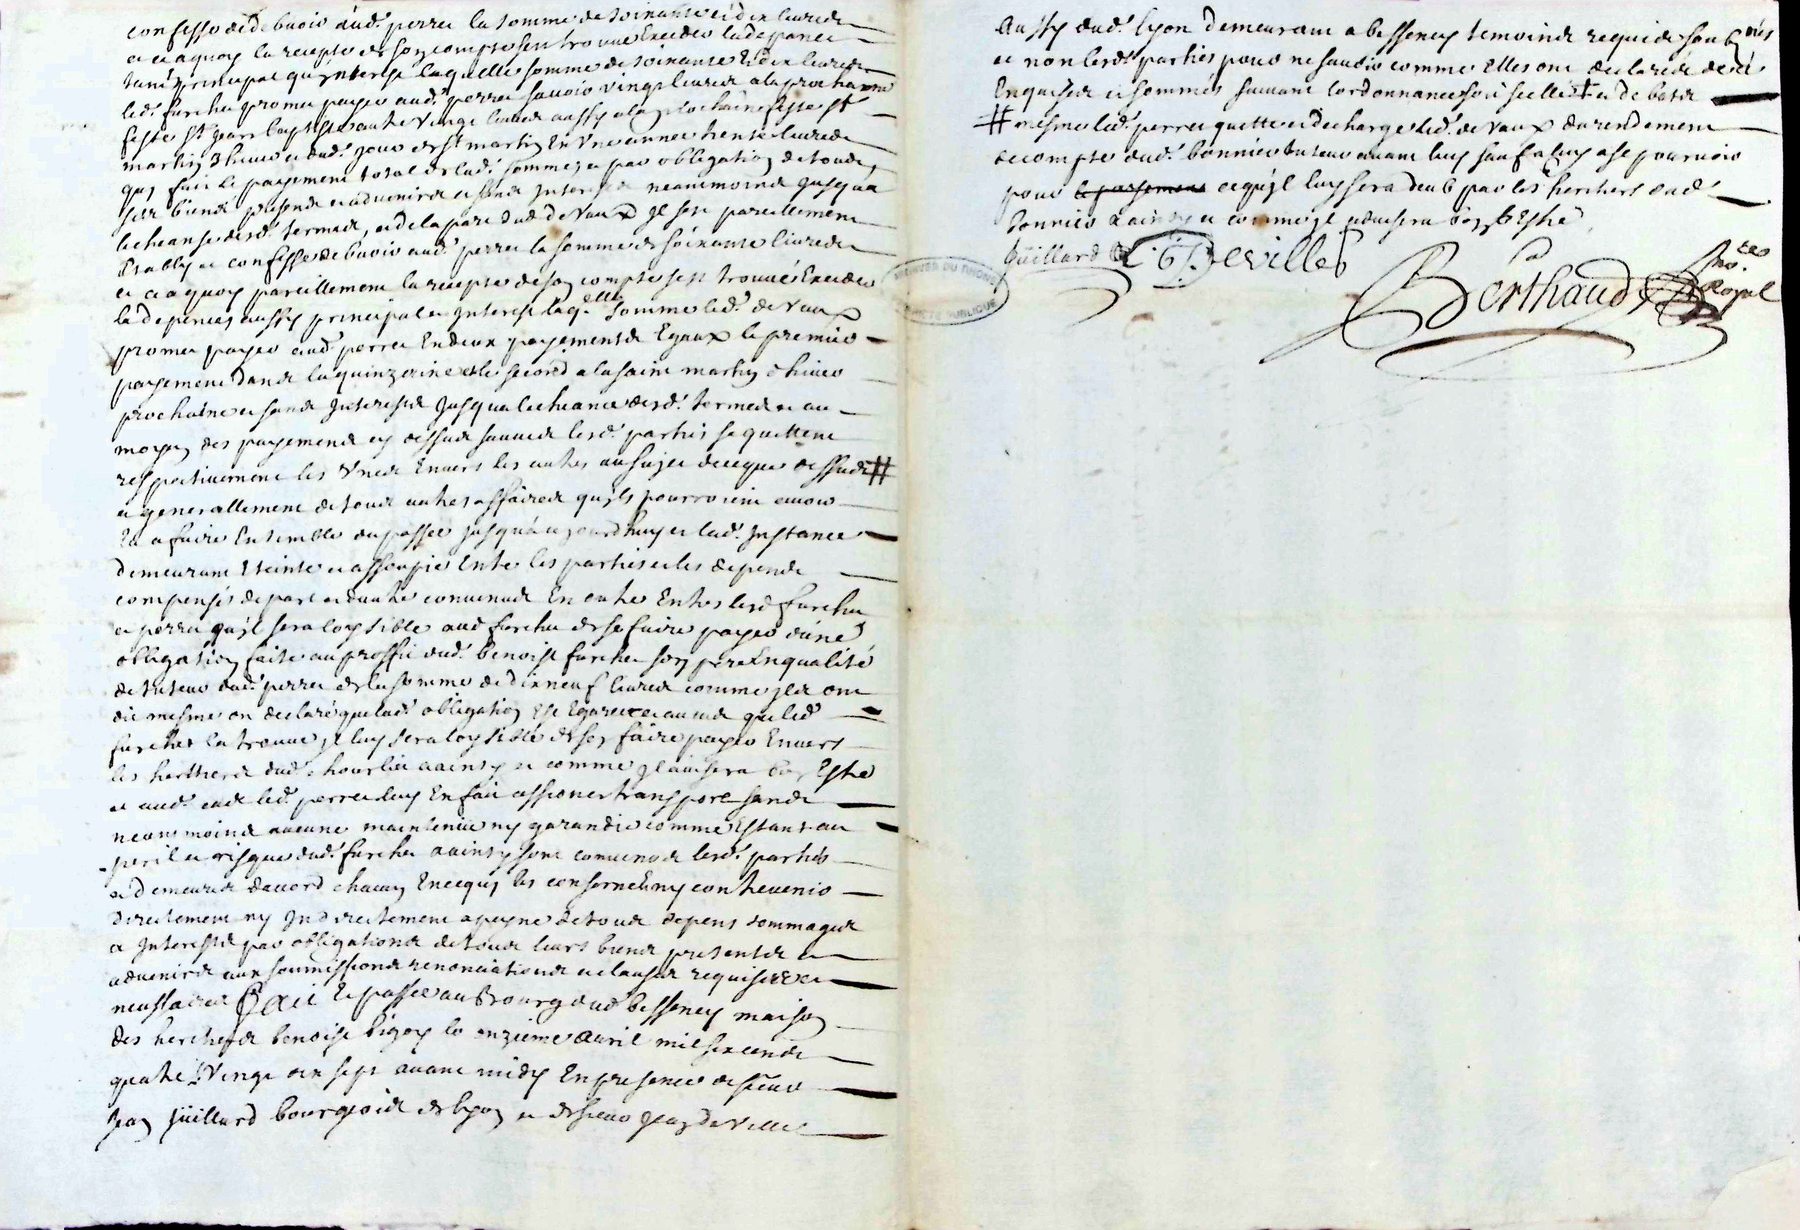 confesse de debvoir aud. perret la somme de soixante et dix livres
et a quoy la recepte de son compte sest trouvé Exceder la depance
tant principal qu'interest laquelle somme de soixante Et dix livres
led. furchu promet payer aud. perret sauoir vingt livres a la prochaine
feste st jean baptiste autre vingt livres aussy a la prochaine feste st
martin d hiuer et dud. jour de st martin En Vne annee trente livres
faire le payement total de lad. somme, et par obligation de tous
ses biens presents et aduenirs et sans Interest neanmoins jusqu'a
lecheance desd. termes, et de la part dud. de Vaux Il sest pareillement
Estably et confesse debuoir aud. perret la somme de soixante livres
et a quoy pareillement la recepte de son compte sest trouvé Exceder
la depences aussy principal et Interest laq.elle somme led. de Vaux
promet payer aud. perret En deux payements Egaux le premier
payement dans la quinzeine et le second a la saint martin d hiuer
prochaine et sans Interests jusqua lecheance desd. termes et au
moyen des payements cy dessus lesd. parties se quittent
respectiuement les Vnes Enuers les autres au sujet de ce que dessus #
et generallement de tous autres affaires qu'ils pourroient auoir
Eu a faire Ensemble du passé jusqu'a aujourdhuy et lad. Instance
demeurant Eteinte et assoupie Entre les parties et les depens
compensés de part et dautre conuenus En outre Entre lesd. furchu
et perret qu'il sera loysible aud. furchu de se faire payer d'une
obligation faite au proffit dud. benoist furchu son pere En qualité
de tuteur dud. perret de la somme de dix neuf livres comme Ils ont
dit mesme ont declaré que lad. obligation Est Egaree et au cas que led.
furchu la trouue Il luy sera loysible de sen faire payer Enuers
les heritiers dud. et ainsy et comme Il auisera bon Estre
et aud. cas led. perret luy En fait et transport sans
neanmoins aucune maintenue ny garandie comme Estant au
peril et risque dud. furchu ainsy sont conuenus lesd. parties
et demeurés daccord chacun En ce qui les conserne ny contreuenir
directement ny Indirectement a peyne de tous depens dommages
et Interests par obligations de tous leurs biens presents et
aduenirs aux soumissions renonciations et clauses requises et
necessaires fait Et passé au bourg dud. bessenay maison
des heritiers benoist bigoy le onzieme auril mil six cents
quatre Vingt dix sept auant midy En presence de sieur
jean juillard bourgeois de lyon et de sieur jean de Ville
Aussy dud. lyon demeurant a bessenay temoins requis et soubsignés
et non lesd. parties pour ne sauoir comme Elles ont declaré de ce
Enquises et sommés suiuant lordonnance et de
# mesme led. perret quitte et decharge led. de Vaux du rendement
de compte dud. bonnier tuteur auant luy sauf a luy a se pouruoir
pour ce qu'il luy sera deub par les heritiers dud.
bonnier Et ainsy et comme Il aduisera bon Estre
Juillard Devilles
Berthaud no.re Royal
ARCHIVES DU RHONE